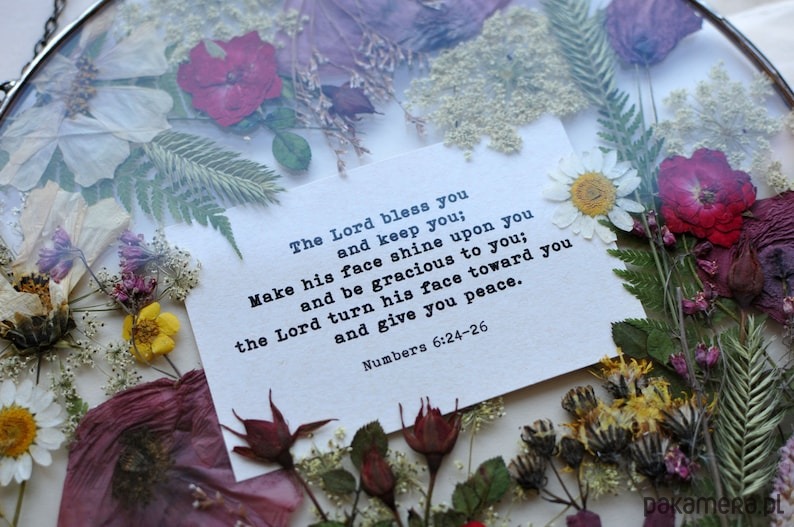 The Lord bless you
and keep you;
Make his face shine upon you
and be gracious to you;
the Lord turn his face toward you
and give you peace.
Numbers 6:24-26
pakamera.pl